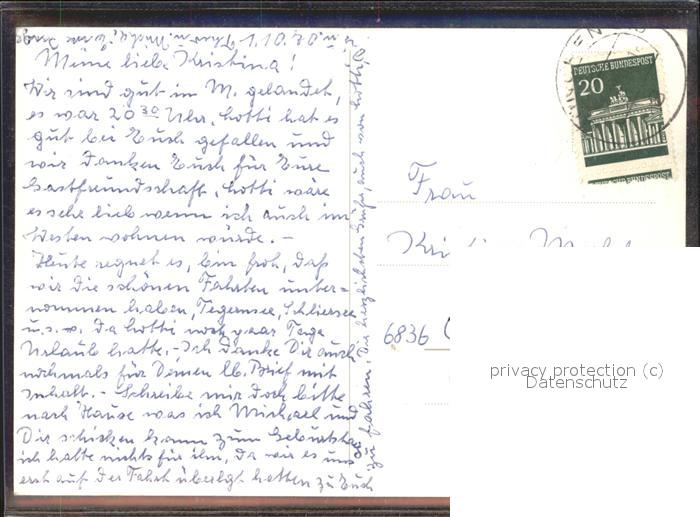 1.10.70
Meine liebe Kristina!
Wir sind gut in M. gelandet,
es war 20 30 Uhr, Lotti hat es
gut bei Euch gefallen und
wir danken Euch für Eure
Gastfreundschaft, Lotti wäre
es sehr lieb wenn ich auch im
Westen wohnen würde. –
Heute regnet es, bin froh, daß
wir die schönen Fahrten unter-
nommen haben, Tegernsee, Schliersee
u.s.w. Da Lotti noch paar Tage
Urlaub hatte. – Ich danke Dir auch
nochmals für Deinen lb. Brief mit
Inhalt. – Schreibe mir doch bitte
nach Hause was ich Michael und
Dir schicken kann zum Geburtstag
ich hatte nichts für ihn, da wir es uns
erst auf der Fahrt überlegt hatten zu Euch
zu fahren. Die herzlichsten Grüße, auch von Lotti,
DEUTSCHE BUNDESPOST
20
DEUTSCHE BUNDESPOST
Frau
6836
privacy protection (c)
Datenschutz